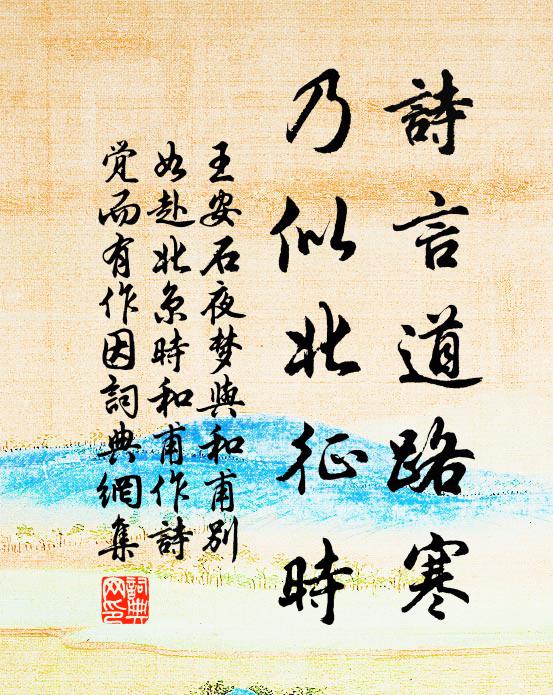 詩言道路寒
乃似北征時
王安石夜梦與和甫别
如赴北京時和甫作詩
覚而有作因詞典網集
詞典